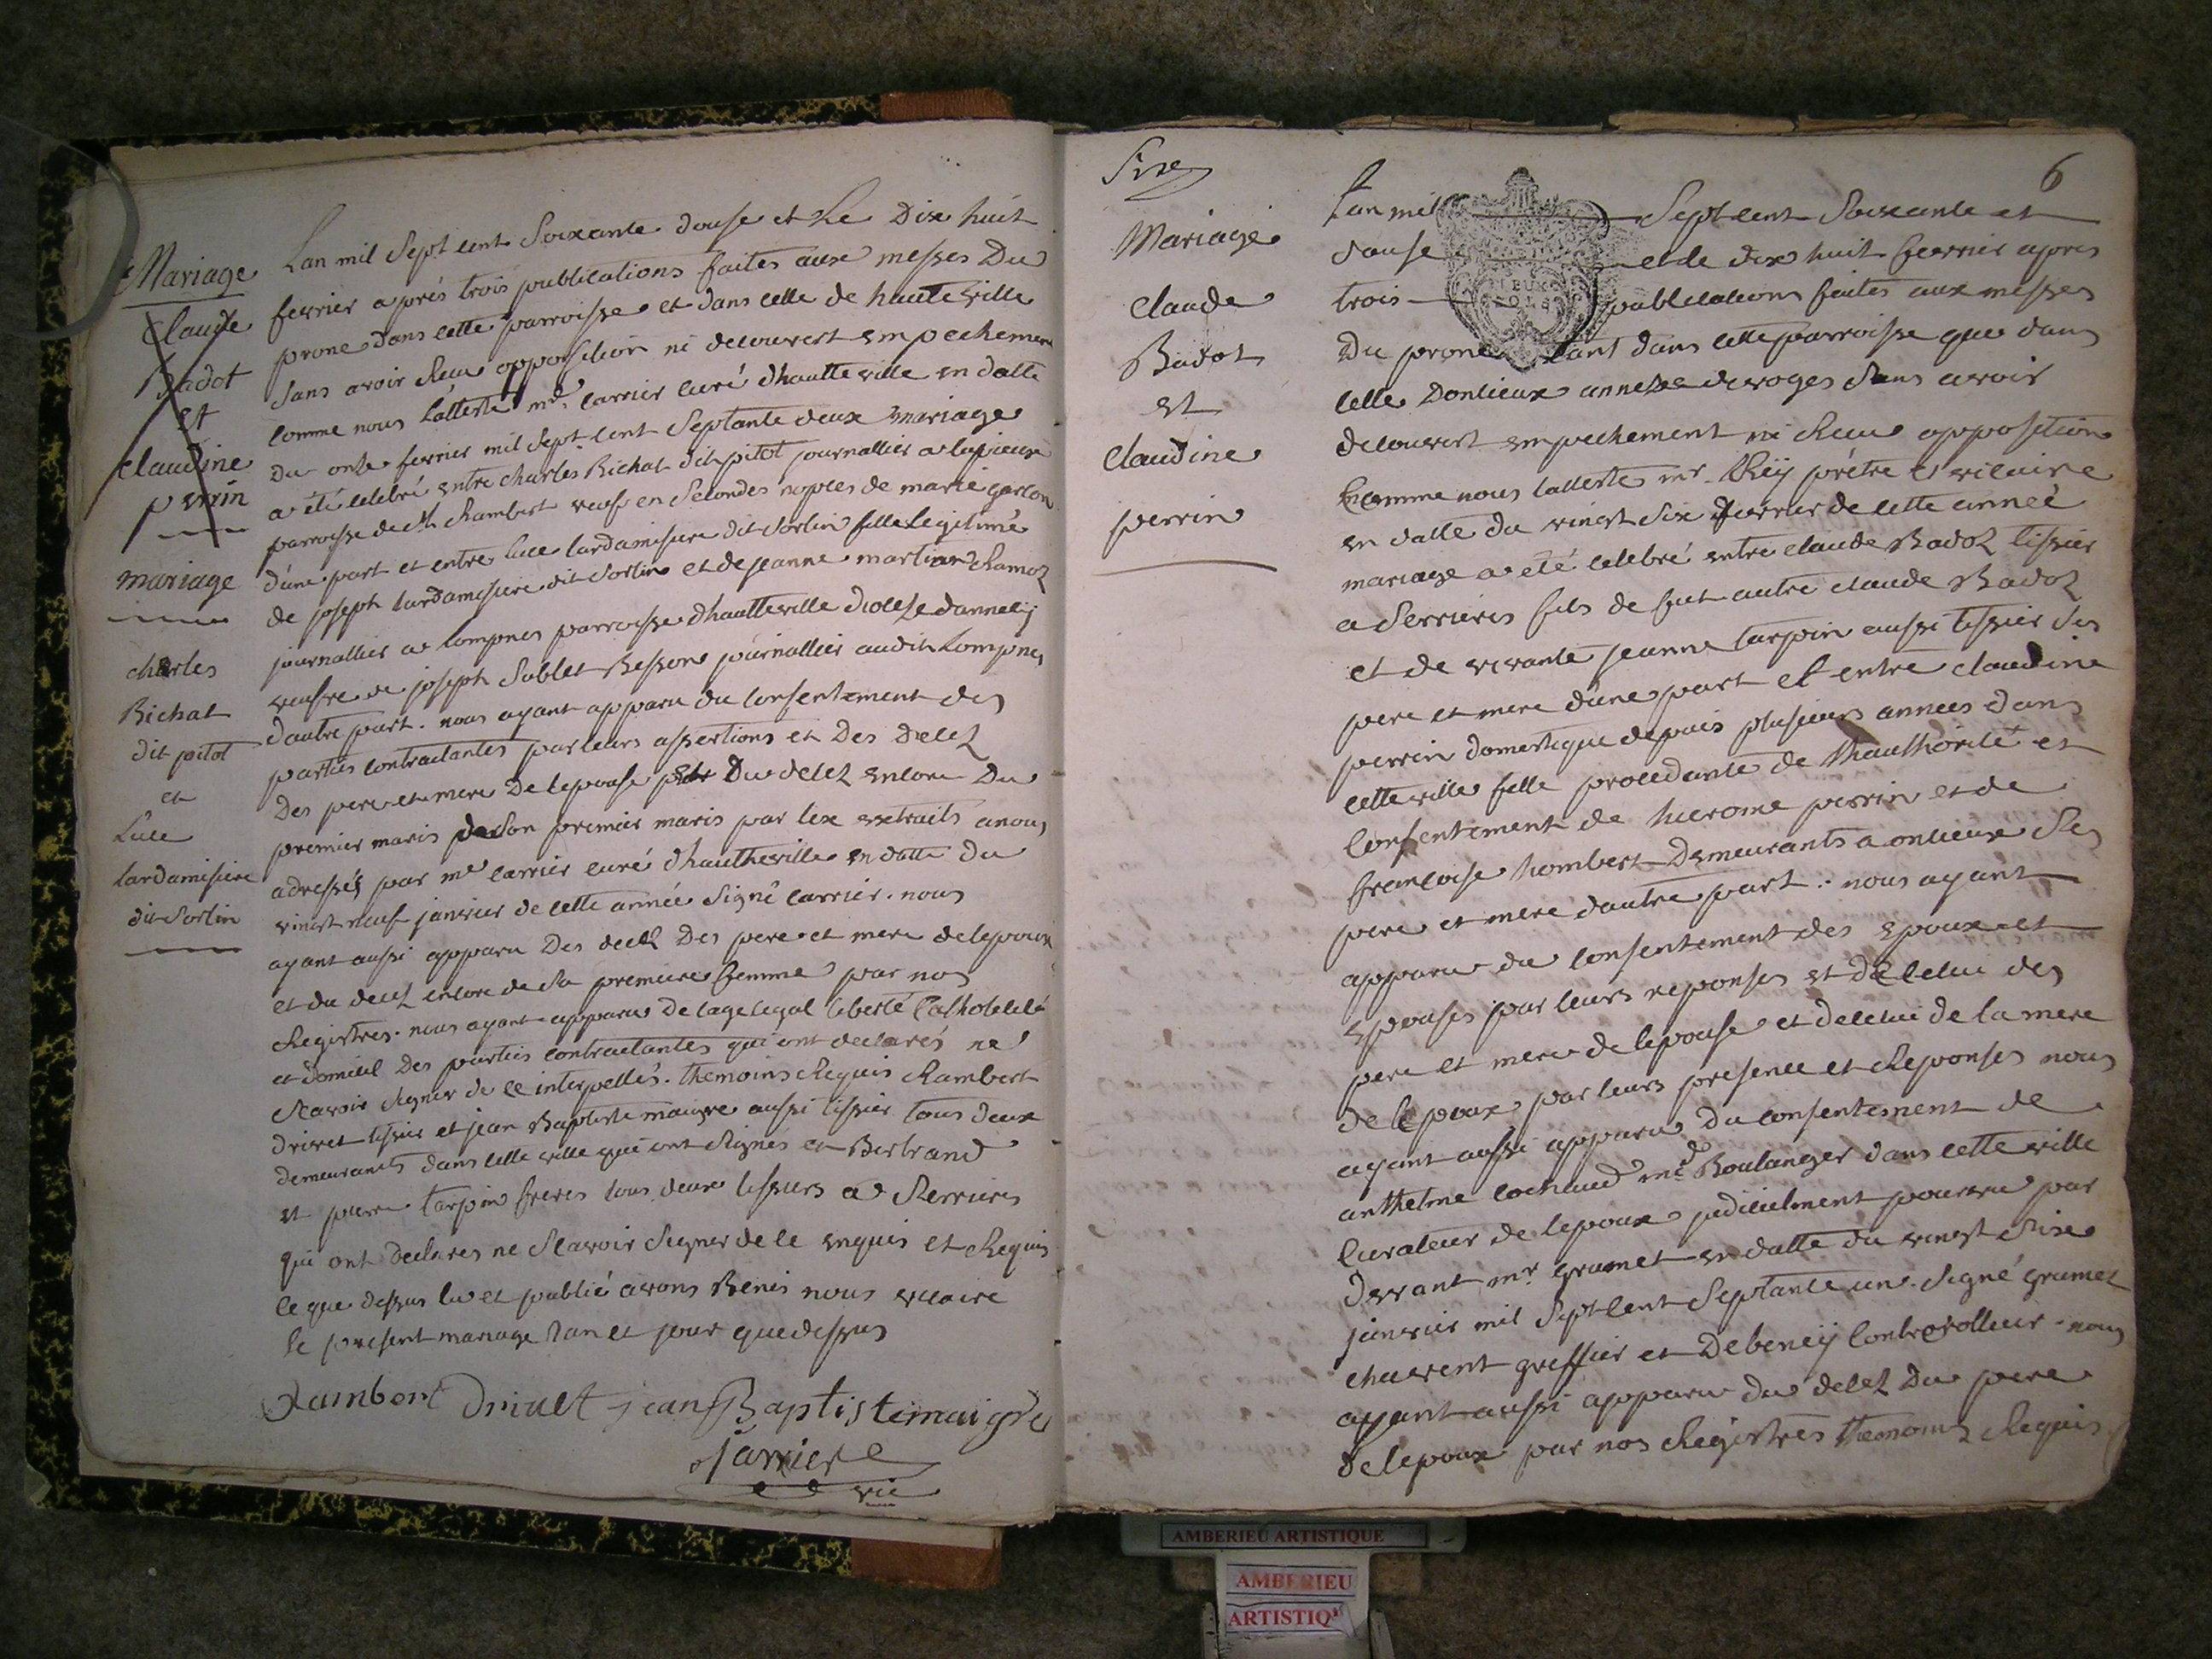 Mariage
Claude
Badot
et
claudine
perrin
mariage
charles
Bichat
dit pitot
et
Luce
lardamisiere
dit Sorlin
Lan mil Sept cent Soixante douse et Le Dix huit
fevrier aprés trois publications faites aux messes Du
prone dans cette parroisse et dans celle de hauteville
Sans avoir Receu opposition ni decouvert empechement
comme nous Latteste mr carrier curé dhautteville en datte
Du onse fevrier mil Sept cent Septante deux mariage
a été celebré entre charles Bichat dit pitot journallier a
parroisse de St Rambert veuf en Secondes nopces de marie garcon
d'une part et entre Luce lardamisiere dit Sorlin fille legitime
de joseph lardamisiere dit Sorlin et de jeanne martinand Ramoz
journallier a Lompnes parroisse dhautteville diocese dannecÿ
veufve de joseph Sublet Besson journallier audit Lompnes
dautre part. nous ayant apparu du consentement des
parties contractantes par leurs assertions et Des Decez
Des pere et mere De lepouse Du decez encore Du
premier maris de Son premier maris par les extraits a nous
adressés par mr carrier curé dhautheville en datte du
vingt neuf janvier de cette année Signé carrier. nous
ayant aussi apparu Des decez Des pere et mere de lepoux
et du decez encore de Sa premiere femme par nos
Registres. nous ayant apparu De lage legal liberté Catholicité
et domicil Des parties contractantes qui ont declarés ne
Scavoir Signer de ce interpellés. themoins Requis Rambert
Drivet tissier et jean Baptiste maigre aussi tissier tous deux
demeurants dans cette ville qui ont Signés et Bertrand
et pierre tarpin freres tous deux tissiers a Serrieres
qui ont Declares ne Scavoir Signer de ce enquis et Requis
ce que dessus lu et publié avons Benis nous vicaire
le present mariage lan et jour que dessus
Rambert Drivet jean Baptiste maigre
Jarriere
vic
Sixe
6
Mariage
claude
Badot
et
claudine
perrin
Lan mil Sept cent Soixante et
douse et le dix huit fevrier apres
trois publications faites aux messes
Du prone tant dans cette parroisse que dans
celle Donlieux annexe de voges Sans avoir
decouvert empechement ni Receu opposition
comme nous latteste mr Reÿ prétre et vicaire
en datte du vingt Six fevrier de cette année
mariage a eté celebré entre claude Badoz tissier
a Serrieres fils de fut autre claude Badoz
et de vivante jeanne tarpin aussi tissier Ses
pere et mere dune part et entre claudine
perrin domestique depuis plusieurs annees dans
cette ville fille procedante de lhauthorité et
consentement de hierome perrin et de
francoise hombert Demeurants a onlieux Ses
pere et mere dautre part. nous ayant
apparu du consentement des epoux et
epouses par leurs reponses et de celui des
pere et mere de lepouse et de celui de la mere
de lepoux par leurs presence et Reponses nous
ayant aussi apparu Du consentement de
anthelme cochaud md Boulanger dans cette ville
Curateur de lepoux judicielment pourvu par
Devant mr gramet en datte du vingt Sixe
janvier mil Sept cent Septante un. Signé gramet
chavent greffier et Debeneÿ Controlleur. nous
ayant aussi apparu du decez Du pere
de lepoux par nos Registres themoins Requis
AMBERIEU ARTISTIQUE
AMBERIEU
ARTISTIQ